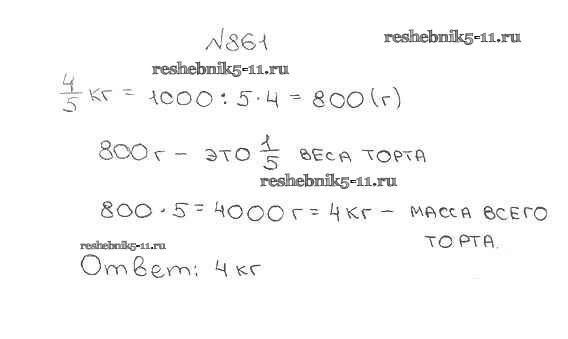 №861
reshebnik5-11.ru
reshebnik5-11.ru
4/5 кг = 1000 : 5 · 4 = 800 (г)
800 г – это 1/5 веса торта
reshebnik5-11.ru
800 · 5 = 4000 г = 4 кг – масса всего
торта.
reshebnik5-11.ru
Ответ: 4 кг